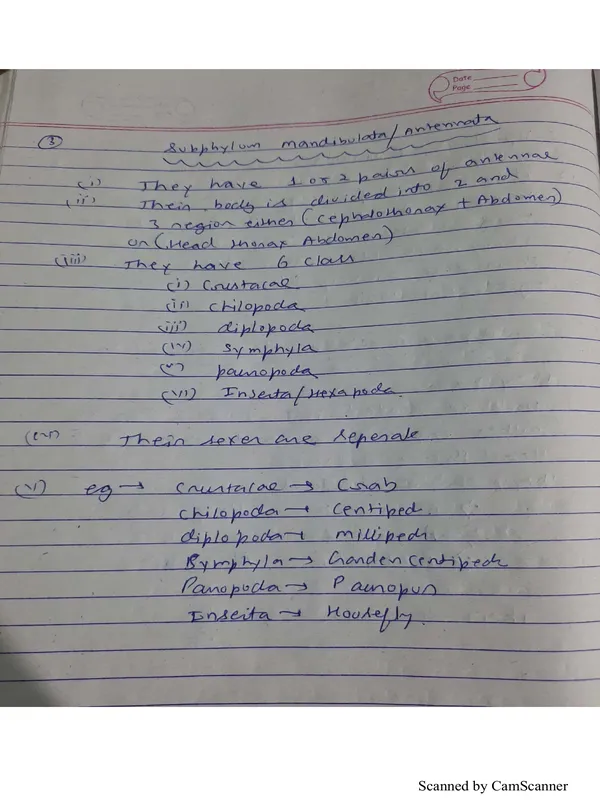 Date
Page
③ Subphylum Mandibulata/Antennata
(i) They have 1 or 2 pairs of antennae
(ii) Their body is divided into 2 and
3 region either (Cephalothorax + Abdomen)
or (Head thorax Abdomen)
(iii) They have 6 class
(i) Crustacae
(ii) chilopoda
(iii) diplopoda
(iv) Symphyla
(v) pauropoda
(vi) Insecta/Hexapoda
(iv) Their sexes are seperate
(v) eg → Crustacae → Crab
chilopoda → Centiped
diplopoda → millipede
Symphyla → Garden Centipede
Pauopoda → Pauropus
Insecta → Housefly.
Scanned by CamScanner